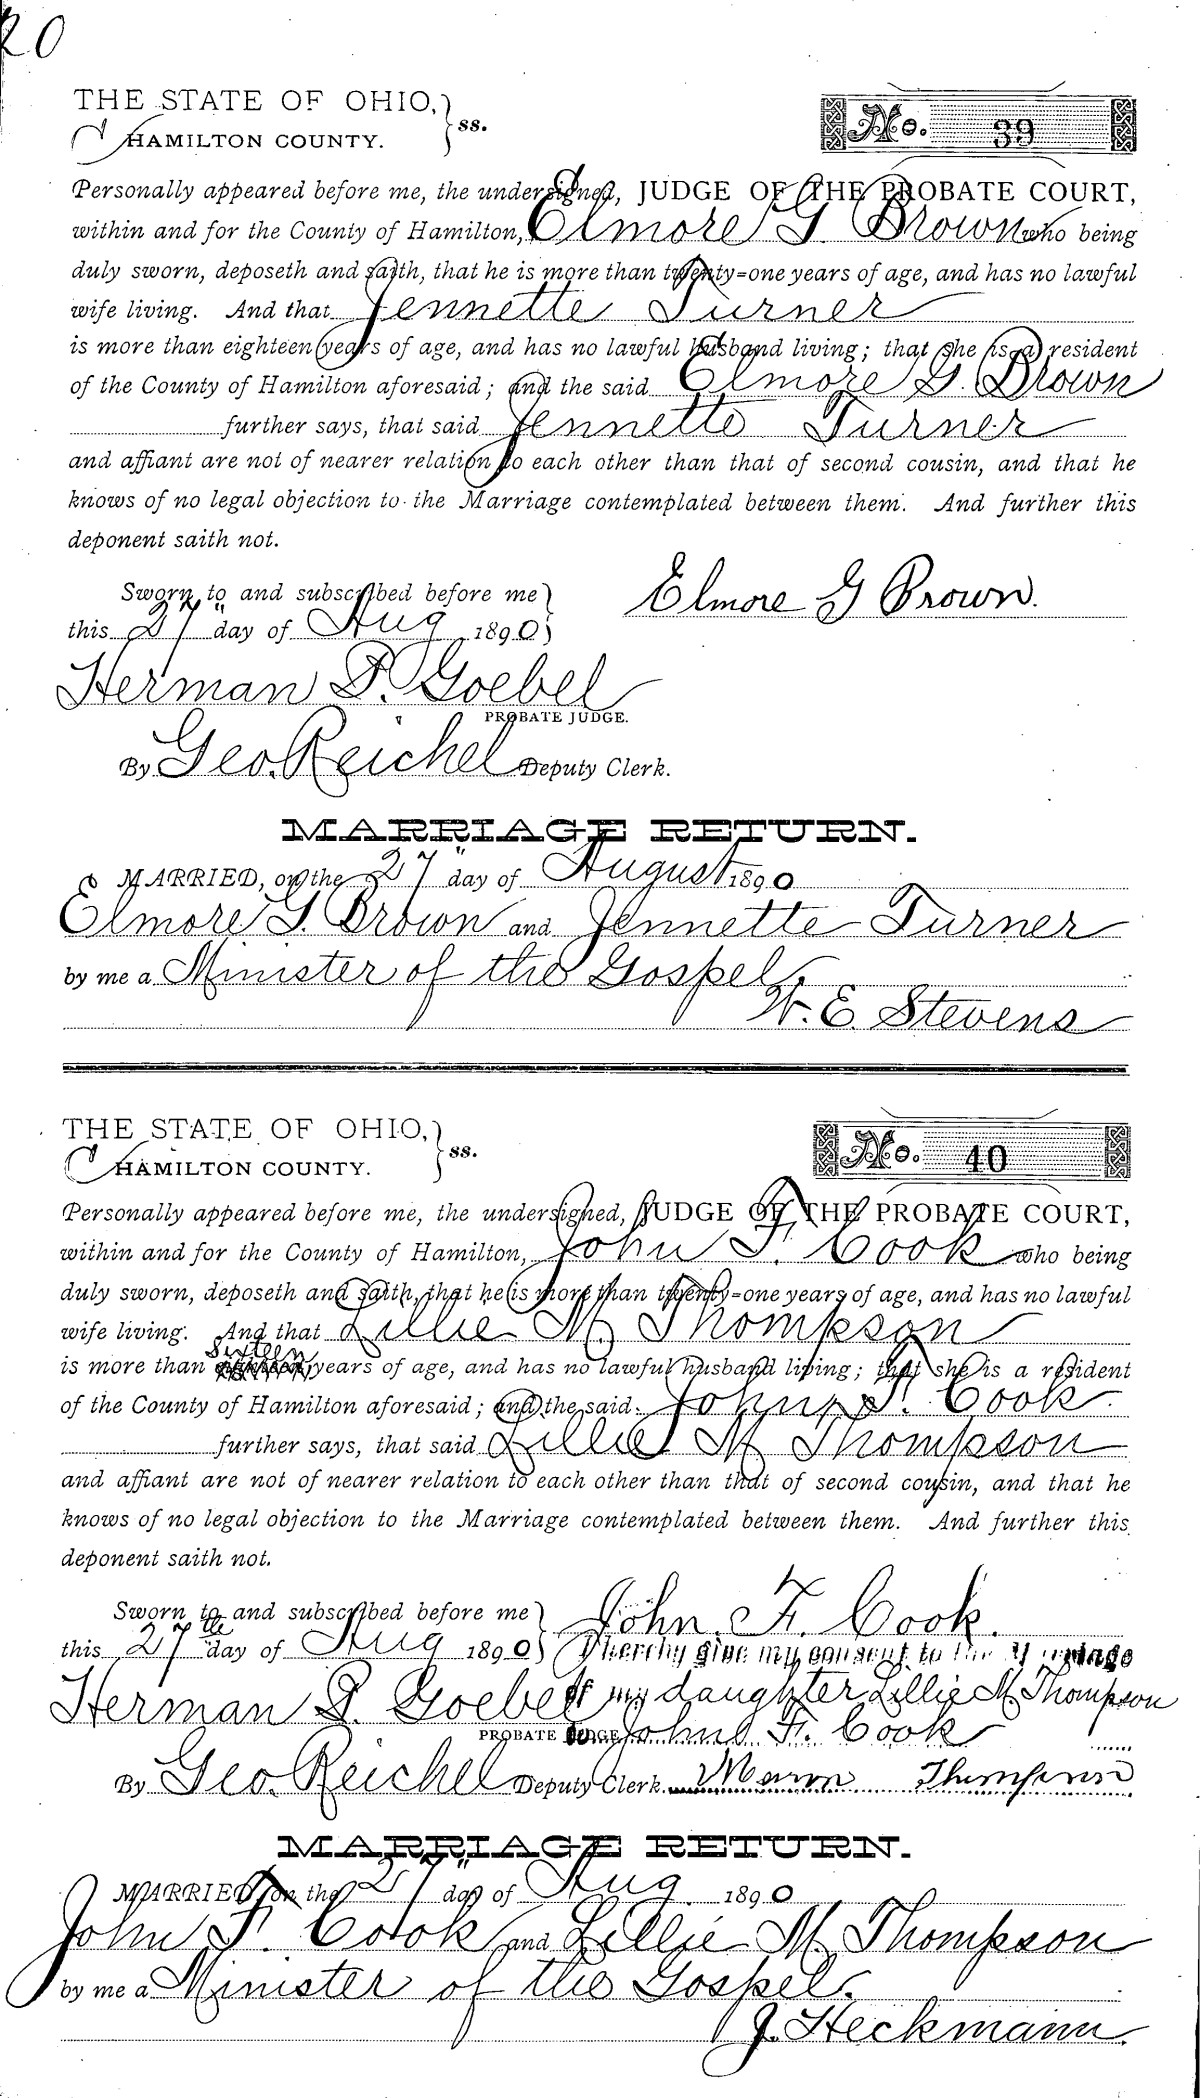 20
THE STATE OF OHIO,
HAMILTON COUNTY. } ss.
No. 39
Personally appeared before me, the undersigned, JUDGE OF THE PROBATE COURT,
within and for the County of Hamilton, Elmore G. Brown who being
duly sworn, deposeth and saith, that he is more than twenty=one years of age, and has no lawful
wife living. And that Jennette Turner
is more than eighteen years of age, and has no lawful husband living; that she is a resident
of the County of Hamilton aforesaid; and the said Elmore G. Brown
further says, that said Jennette Turner
and affiant are not of nearer relation to each other than that of second cousin, and that he
knows of no legal objection to the Marriage contemplated between them. And further this
deponent saith not.
Sworn to and subscribed before me
this 27" day of Aug 1890
Elmore G Brown.
Herman P. Goebel
PROBATE JUDGE.
By Geo. Reichel Deputy Clerk.
MARRIAGE RETURN.
MARRIED, on the 27" day of August 1890
Elmore G. Brown and Jennette Turner
by me a Minister of the Gospel,
W. E. Stevens
THE STATE OF OHIO,
HAMILTON COUNTY. } ss.
No. 40
Personally appeared before me, the undersigned, JUDGE OF THE PROBATE COURT,
within and for the County of Hamilton, John F. Cook who being
duly sworn, deposeth and saith, that he is more than twenty=one years of age, and has no lawful
wife living. And that Lillie M Thompson
is more than sixteen years of age, and has no lawful husband living; that she is a resident
of the County of Hamilton aforesaid; and the said John F. Cook
further says, that said Lillie M Thompson
and affiant are not of nearer relation to each other than that of second cousin, and that he
knows of no legal objection to the Marriage contemplated between them. And further this
deponent saith not.
Sworn to and subscribed before me
this 27th day of Aug 1890
John. F. Cook.
I hereby give my consent to the Marriage
of my daughter Lillie M Thompson
to John F. Cook
Herman P. Goebel
PROBATE JUDGE.
By Geo. Reichel Deputy Clerk.
Thompson
MARRIAGE RETURN.
MARRIED, on the 27" day of Aug 1890
John F. Cook and Lillie M. Thompson
by me a Minister of the Gospel.
J. Heckmann.